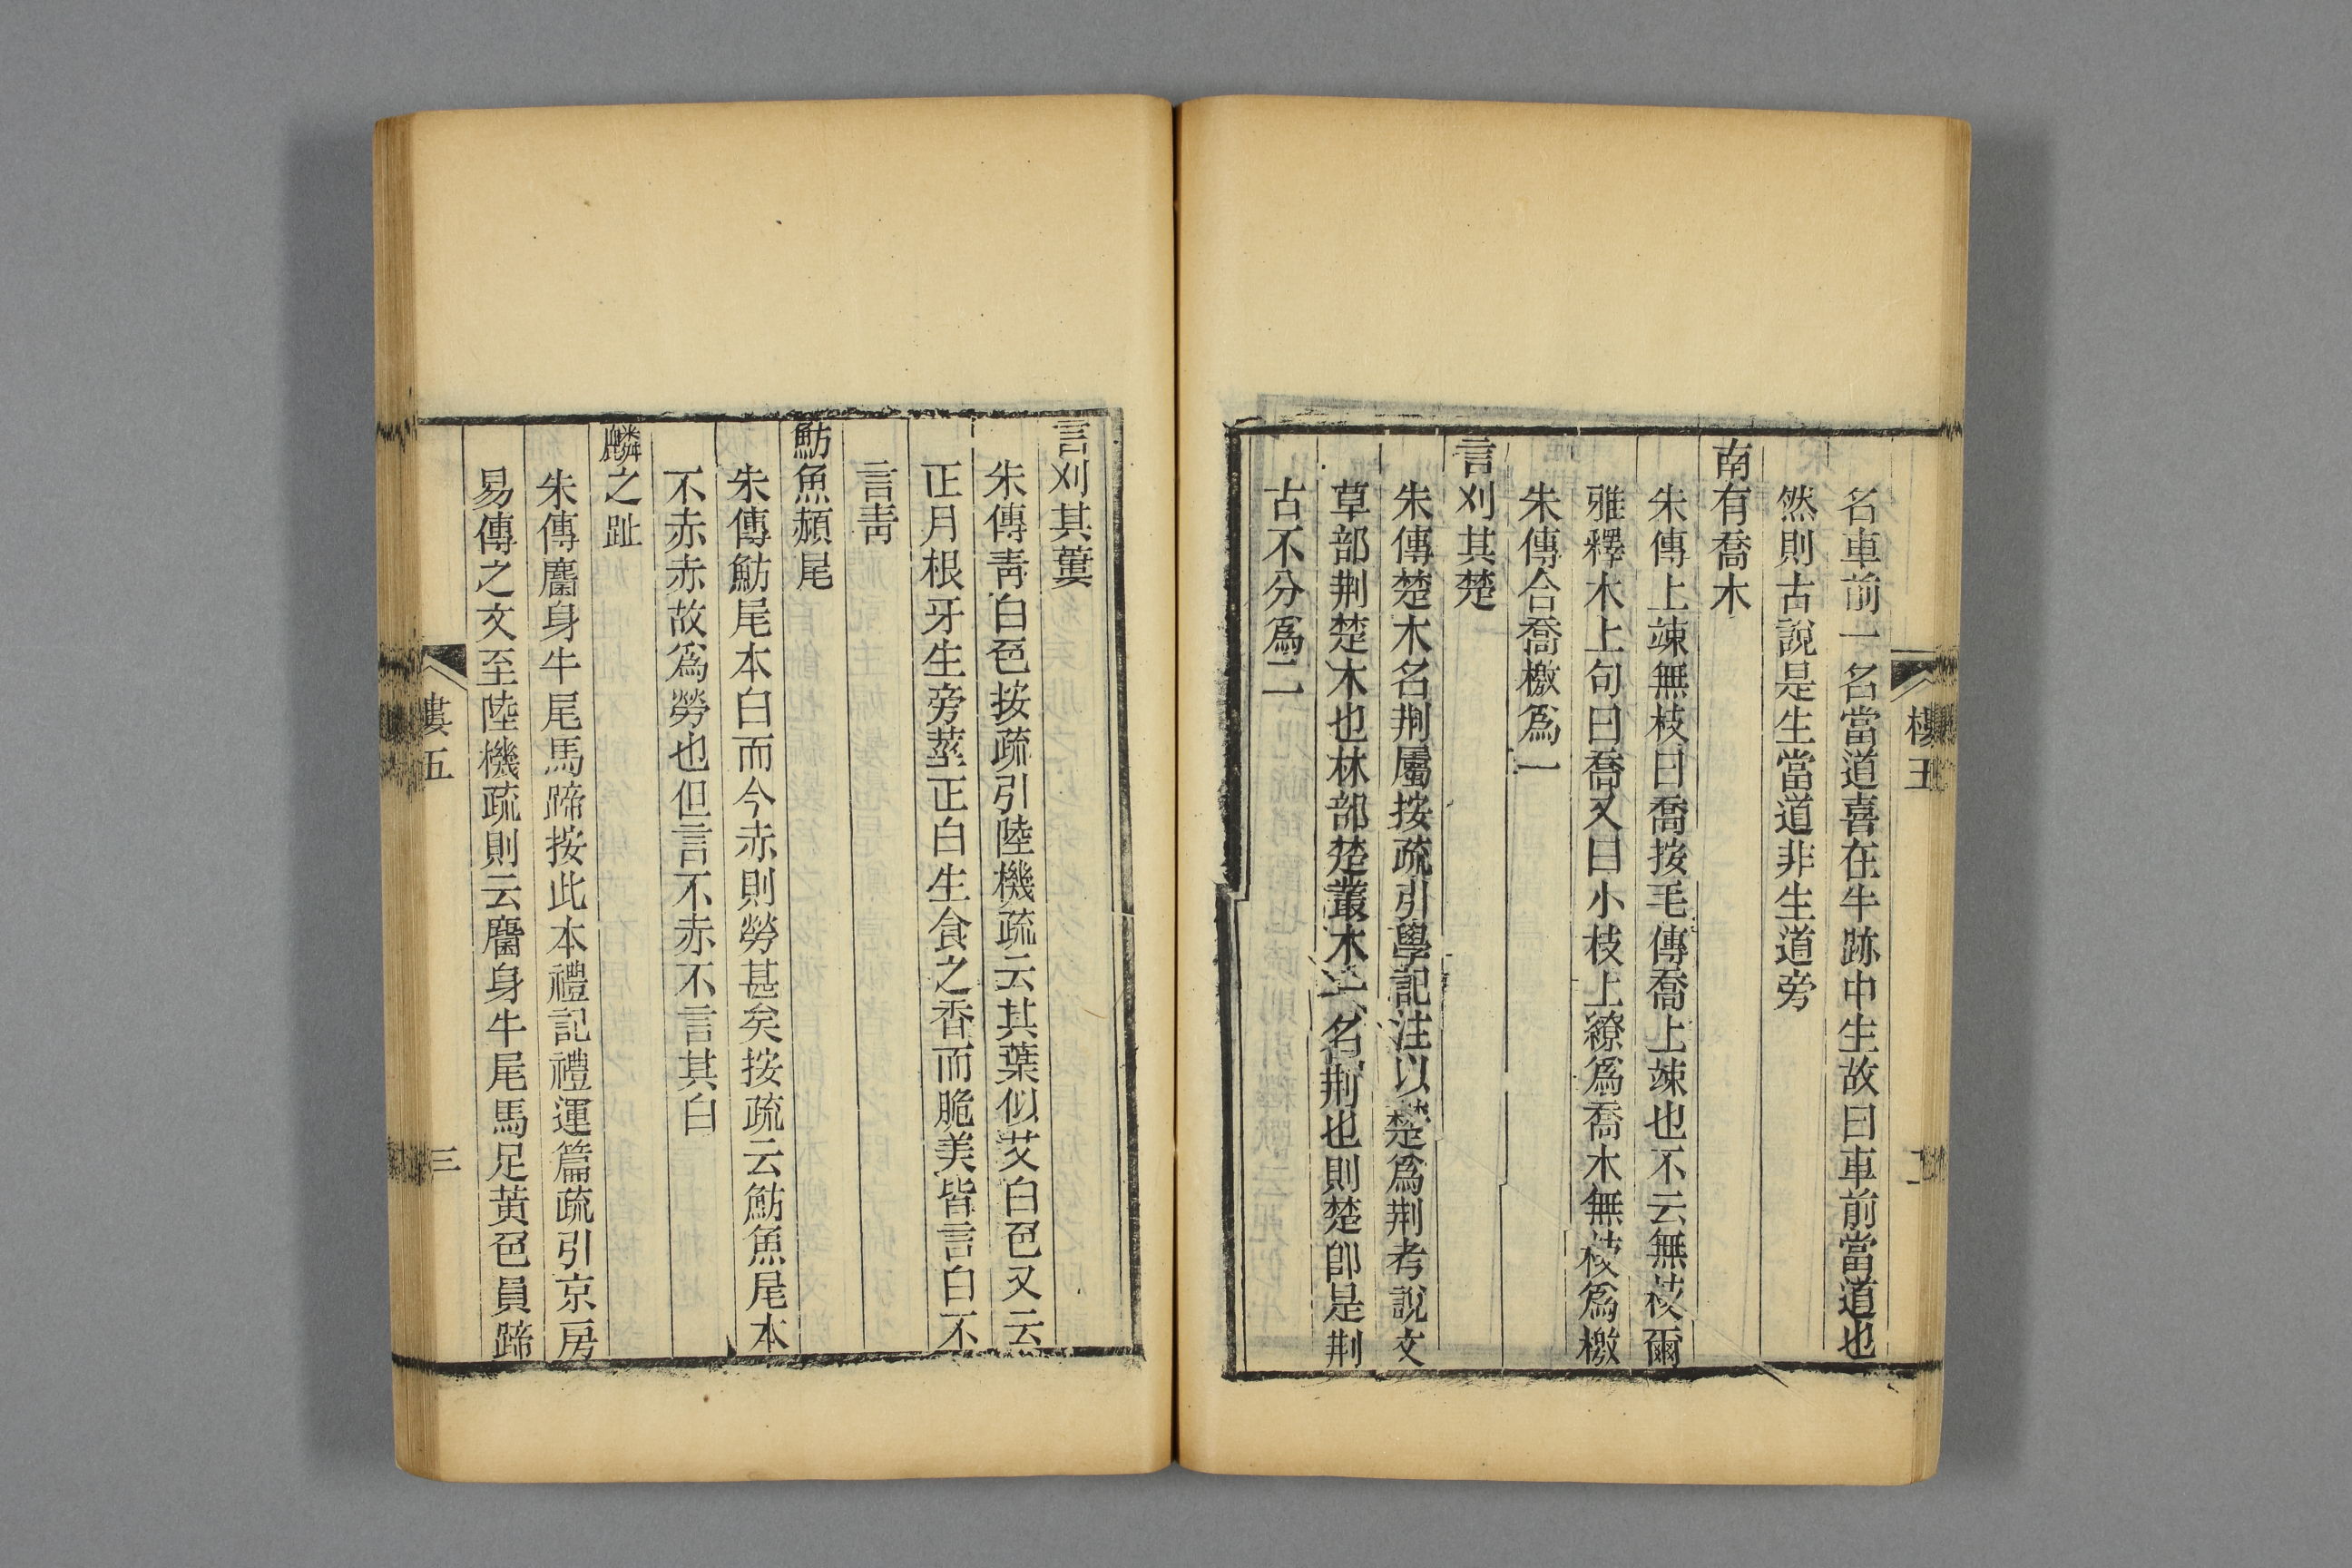 名車前一名當道喜在牛跡中生故曰車前當道也
然則古說是生當道非生道旁
南有喬木
朱傳上竦無枝曰喬按毛傳喬上竦也不云無枝爾
雅釋木上句曰喬又曰小枝上繚爲喬木無枝爲檄
朱傳合喬檄爲一
言刈其楚
朱傳楚木名荆屬按疏引學記注以楚爲荆考說文
草部荆楚木也林部楚叢木一名荆也則楚卽是荆
古不分爲二
言刈其蔞
朱傳靑白色按疏引陸機疏云其葉似艾白色又云
正月根牙生旁莖正白生食之香而脆美皆言白不
言靑
魴魚赬尾
朱傳魴尾本白而今赤則勞甚矣按疏云魴魚尾本
不赤赤故爲勞也但言不赤不言其白
麟之趾
朱傳麕身牛尾馬蹄按此本禮記禮運篇疏引京房
易傳之文至陸機疏則云麕身牛尾馬足黃色員蹄
婁五
三